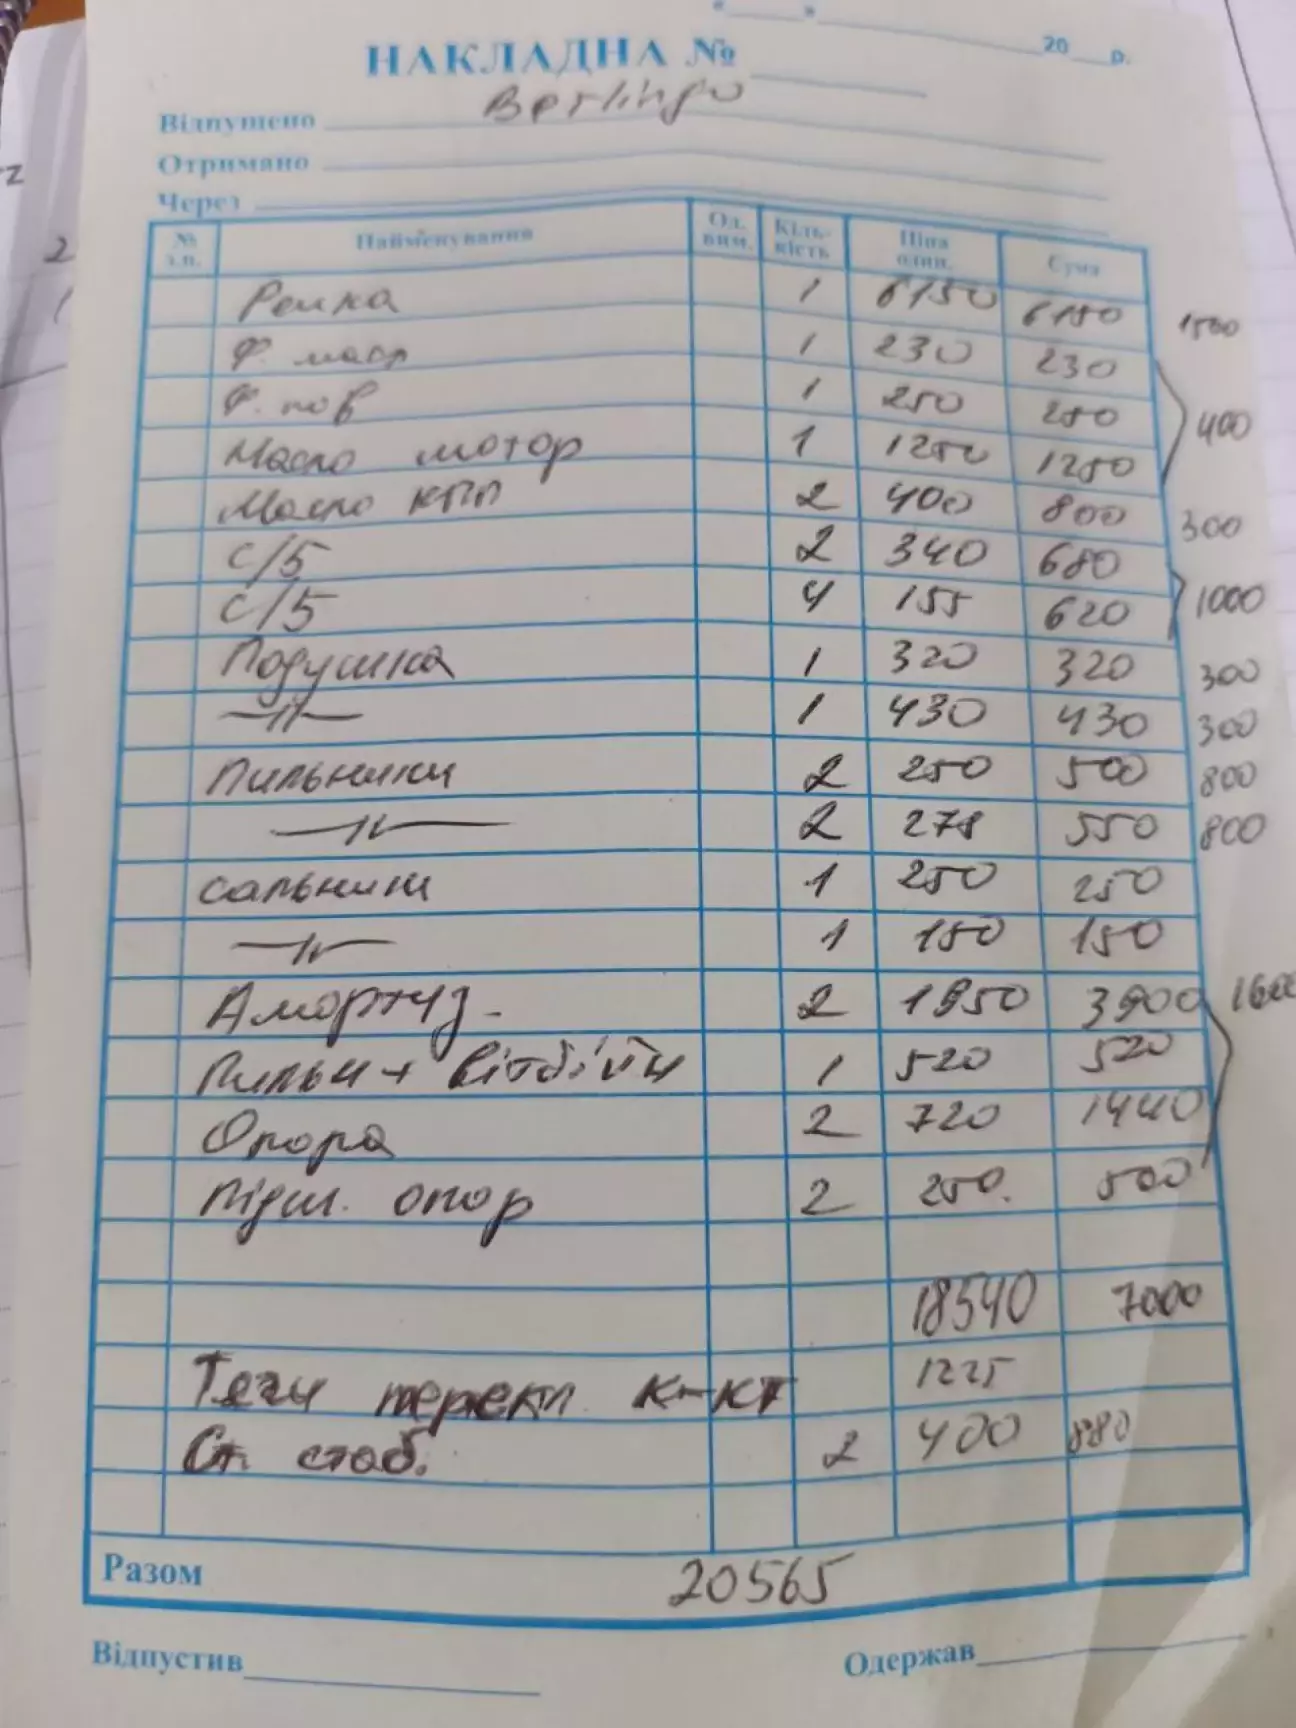 « » 20 р.
НАКЛАДНА №
Berlingo
Відпущено
Отримано
Через
№ з.п. Найменування Од. вим. Кіль- кість Ціна один. Сума
Рейка 1 6150 6150 1500
Ф. масл 1 230 230
Ф. пов 1 250 250 400
Масло мотор 1 1250 1250
Масло КПП 2 400 800 300
С/б 2 340 680
С/б 4 155 620 1000
Подушка 1 320 320 300
—//— 1 430 430 300
Пильники 2 250 500 800
—//— 2 275 550 800
сальники 1 250 250
—//— 1 150 150
Амортиз. 2 1950 3900 1600
Пильн + вітбійн 1 520 520
Опора 2 720 1440
Підш. опор 2 250. 500
18540 7000
Тяги перекл к-кт 1225
Ст. стаб. 2 400
Разом 20565
Відпустив
Одержав